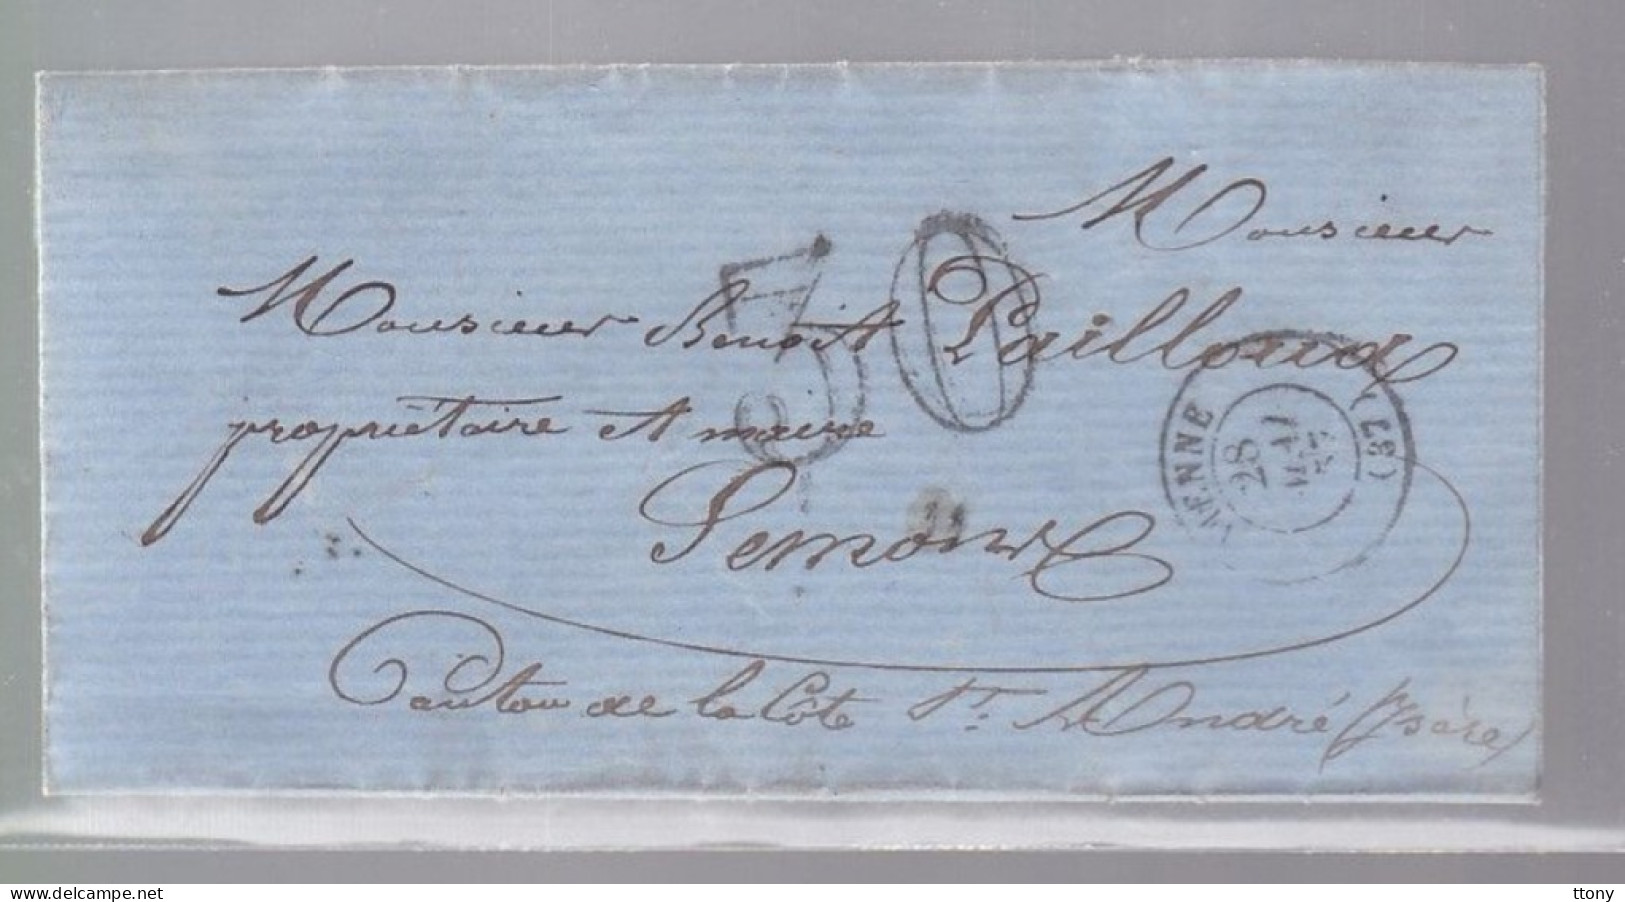 Monsieur
Monsieur Benoit Pailloud
propriétaire et maire
Semons
Canton de la Côte St. André (Isère)
30
VIENNE (37)
28
www.delcampe.net
ttony